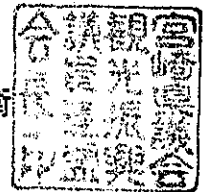 宮崎県議会
観光振興
議員連盟
会長之印